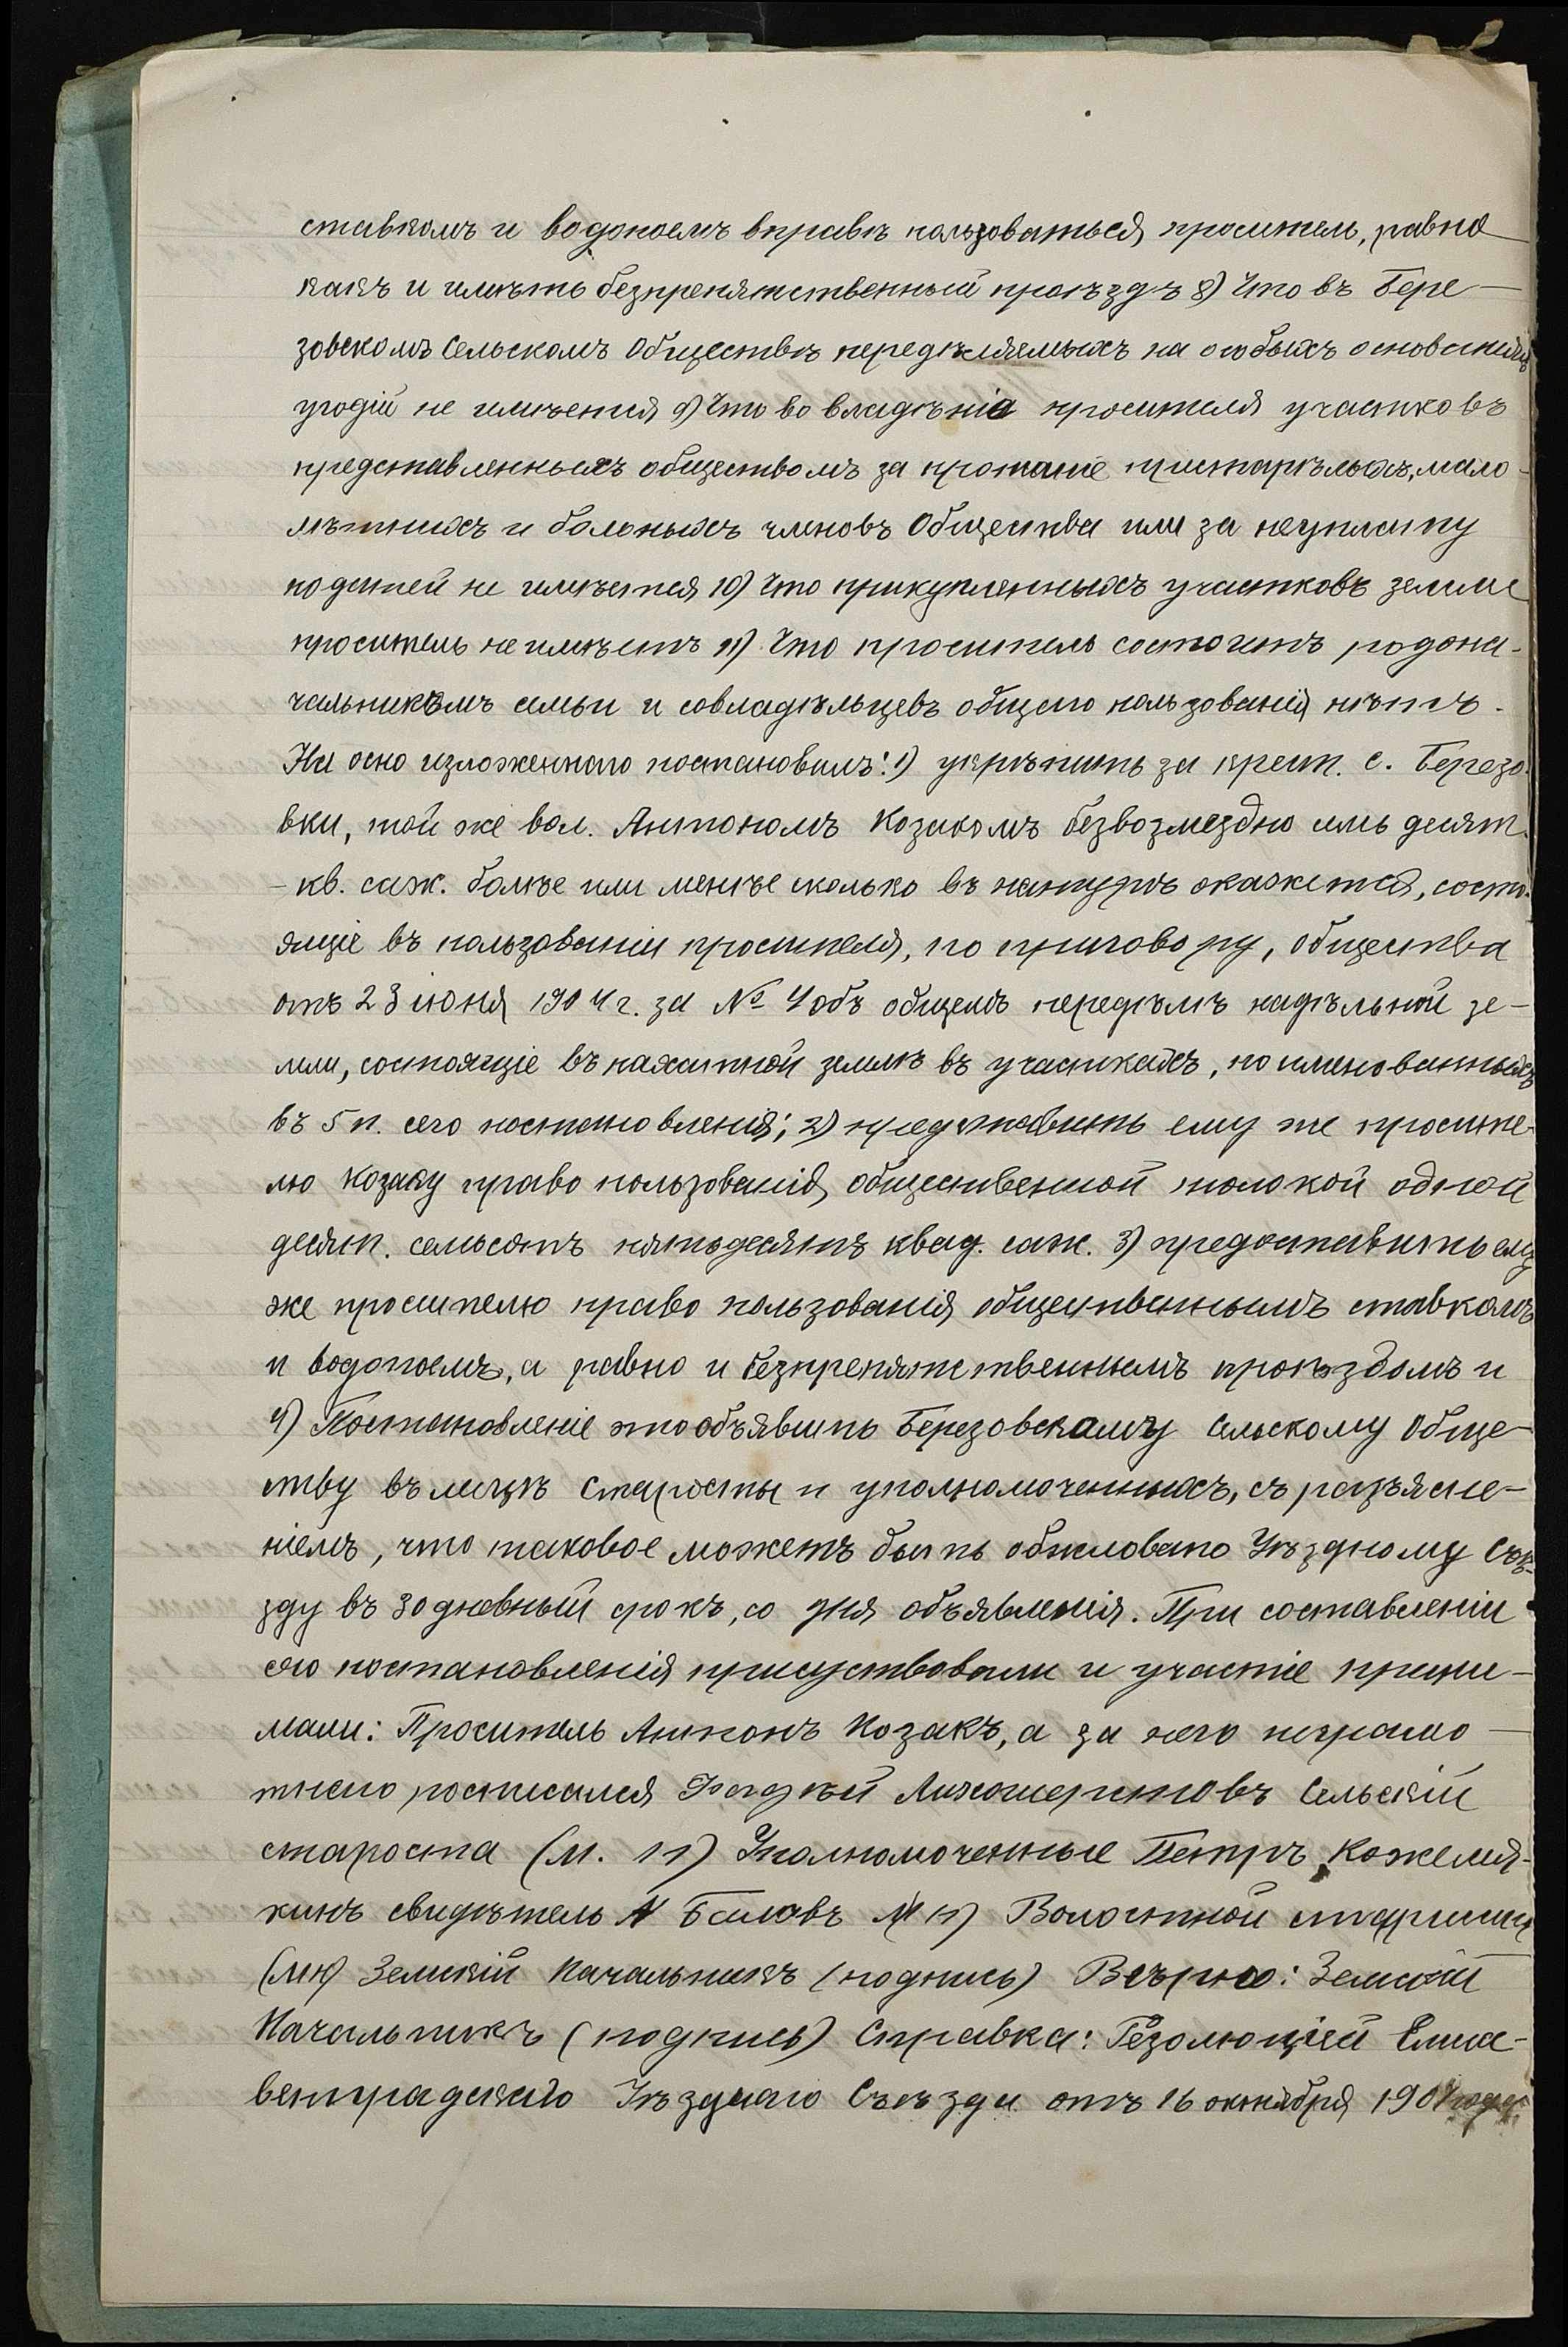 ставкомъ и водопоемъ вправѣ пользоваться проситель, равно
какъ и имѣть безпрепятственный проѣздъ 8) Что въ Бере-
зовскомъ Сельскомъ Обществѣ передѣляемыхъ на особыхъ основаніяхъ
угодій не имѣется 9) Что во владѣніи просителя участковъ
представленныхъ обществомъ за питаніе престарѣлыхъ, мало-
лѣтнихъ и больныхъ членовъ Общества или за неуплату
податей не имѣется 10) Что прикупленныхъ участковъ земли
проситель не имѣетъ 11) Что проситель состоитъ родона-
чальникомъ семьи и совладѣльцевъ общаго пользованія нѣтъ.
На осно изложеннаго постановилъ: 1) укрѣпить за крест. с. Березо-
вки, той же вол. Антономъ Козакомъ безвозмездно семь десят.
- кв. саж. болѣе или менѣе сколько въ натурѣ окажется, состо-
ящіе въ пользованіи просителя, по приговору, общества
отъ 23 іюня 1904 г. за № 4 объ общемъ передѣлѣ надѣльной зе-
мли, состоящіе въ пахатной землѣ въ участкахъ, поименованныхъ
въ 5 п. сего постановленія; 2) предоставить ему же просите-
лю Козаку право пользованія общественной толокой одной
десят. семьсотъ пятьдесятъ квад. саж. 3) предоставить ему
же просителю право пользованія общественнымъ ставкомъ
и водопоемъ, а равно и безпрепятственнымъ проѣздомъ и
4) Постановленіе это объявить Березовскому Сельскому Обще-
ству въ лицѣ Старосты и уполномоченныхъ, съ разъясне-
ніемъ, что таковое можетъ быть обжаловано Уѣздному Съѣ-
зду въ 30 дневный срокъ, со дня объявленія. При составленіи
сего постановленія присуствовали и участіе прини-
мали: Проситель Антонъ Козакъ, а за него неграмо-
тнаго росписался Фадѣй Лихошерстовъ Сельскій
староста (М. П) Уполномоченные Петръ Кожемя-
кинъ свидѣтель А Бѣловъ М П) Волостной старшина
(МП) Земскій Начальникъ (подпись) Вѣрно: Земскій
Начальникъ (подпись) Справка: Резолюціей Елиса-
ветградскаго Уѣзднаго Съѣзда отъ 16 октября 190 года